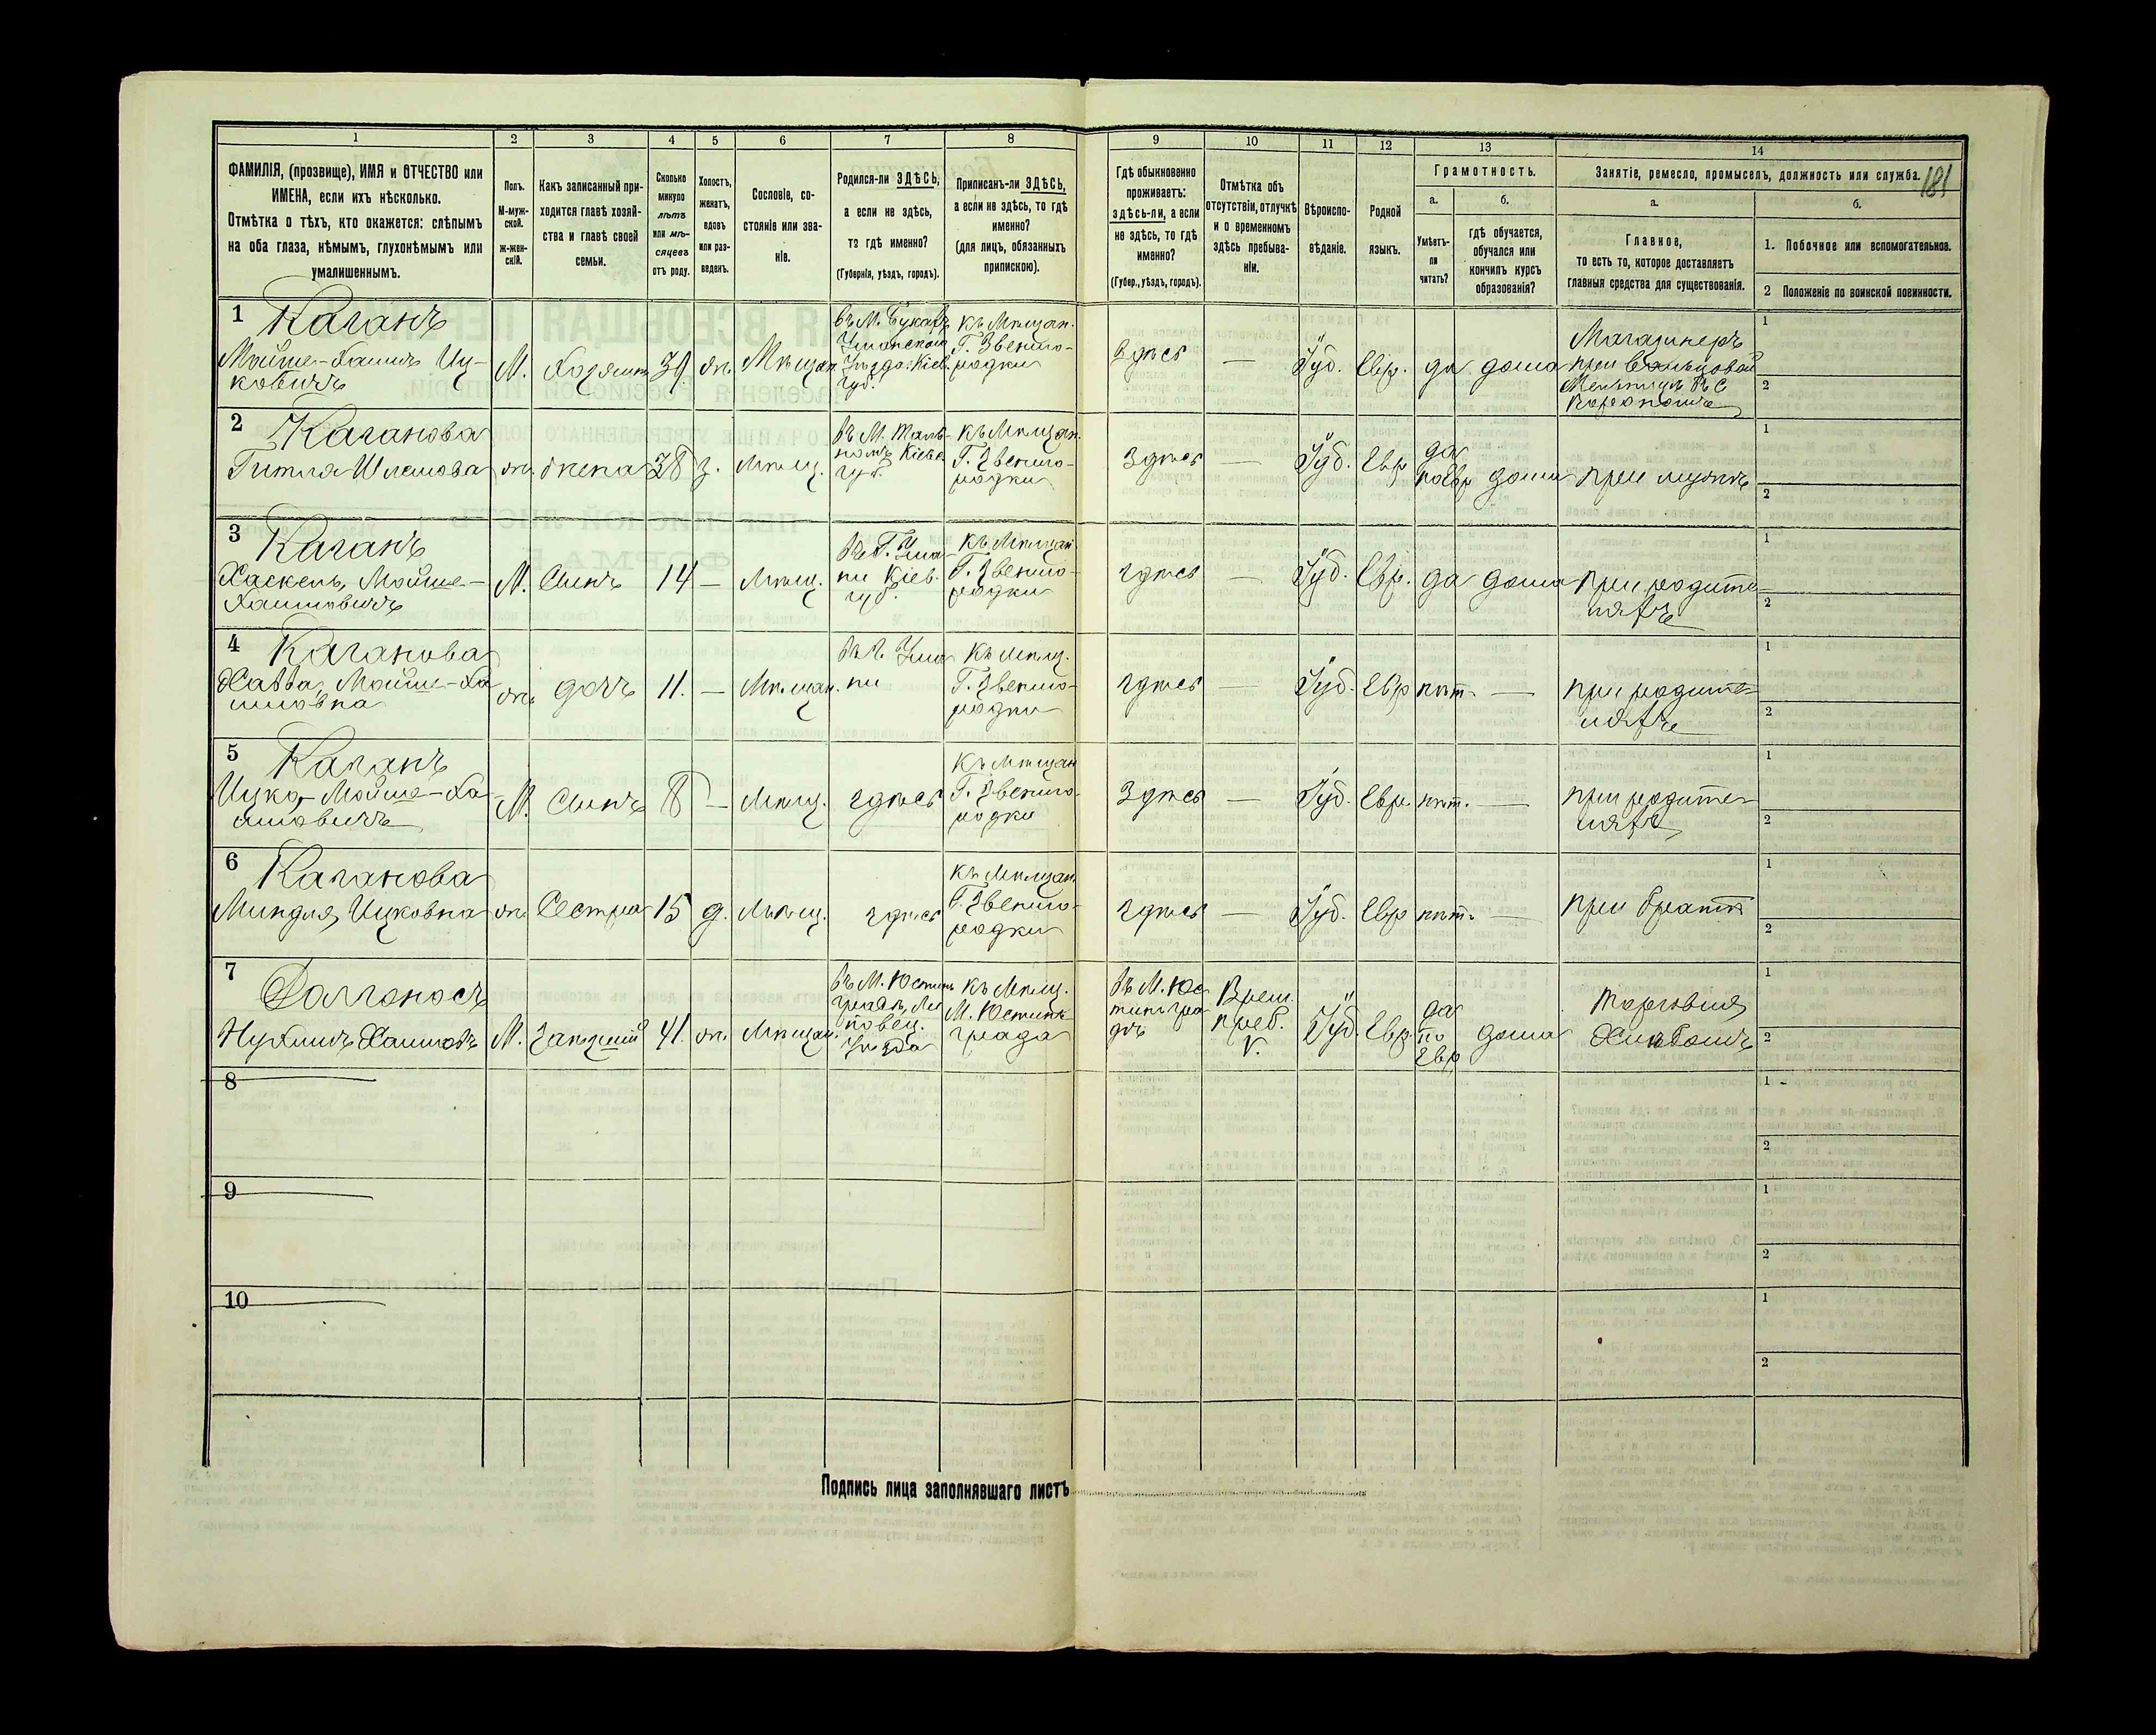 1
2
3
4
5
6
7
8
9
10
11
12
13
14
181
ФАМИЛІЯ, (прозвище), ИМЯ и ОТЧЕСТВО или
ИМЕНА, если ихъ нѣсколько.
Отмѣтка о тѣхъ, кто окажется: слѣпымъ
на оба глаза, нѣмымъ, глухонѣмымъ или
умалишеннымъ.
Полъ.
М-муж-
ской.
ж-жен-
скій.
Какъ записанный при-
ходится главѣ хозяй-
ства и главѣ своей
семьи.
Сколько
минуло
лѣтъ
или мѣ-
сяцевъ
отъ роду.
Холостъ,
женатъ,
вдовъ
или раз-
веденъ.
Сословіе, со-
стояніе или зва-
ніе.
Родился-ли ЗДѢСЬ,
а если не здѣсь,
то гдѣ именно?
(Губернія, уѣздъ, городъ).
Приписанъ-ли ЗДѢСЬ,
а если не здѣсь, то гдѣ
именно?
(для лицъ, обязанныхъ
припискою).
Гдѣ обыкновенно
проживаетъ:
здѣсь-ли, а если
не здѣсь, то гдѣ
именно?
(Губер., уѣздъ, городъ).
Отмѣтка объ
отсутствіи, отлучкѣ
и о временномъ
здѣсь пребыва-
ніи.
Вѣроиспо-
вѣданіе.
Родной
языкъ.
Грамотность.
а.
Умѣетъ-
ли
читать?
б.
гдѣ обучается,
обучался или
кончилъ курсъ
образованія?
Занятіе, ремесло, промыселъ, должность или служба.
а.
Главное,
то есть то, которое доставляетъ
главныя средства для существованія.
б.
1. Побочное или вспомогательное.
2 Положеніе по воинской повинности.
1
Каганъ
Мойше-Хаимъ Иц-
ковичъ
М.
Хозяинъ
39
ж.
Мѣщан.
Уманскаго
Уѣзда Кіев.
губ.
Къ Мѣщан.
Г. Звениго-
родки
Здѣсь
—
Іуд.
Евр.
да
дома
Магазинеръ
при Вальцовой
1
2
2
Каганова
Гитля Шлемова
ж.
жена
38
з.
Мѣщ.
Въ М. Таль-
номъ Кіевс.
губ.
Къ Мѣщан.
Г. Звениго-
родки
Здѣсь
—
Іуд.
Евр
да
по Евр
дома
при мужѣ
1
2
3
Каганъ
Хаскель Мойше-
Хаимовичъ
М.
Сынъ
14
—
Мѣщ.
Въ Г. Ума-
ни Кіев.
губ.
Къ Мѣщан.
Г. Звениго-
родки
здѣсь
—
Іуд.
Евр.
да
дома
при родите-
ляхъ
1
2
4
Каганова
Хавва Мойше-Ха
имовна
ж.
дочь
11.
—
Мѣщан.
Въ г. Ума
ни
Къ Мѣщ.
Г. Звениго-
родки
здѣсь
—
Іуд.
Евр
нѣт.
—
при родите-
ляхъ
1
2
5
Каганъ
Ицко Мойше-Ха-
имовичъ
М.
Сынъ
8
—
Мѣщ.
здѣсь
Къ Мѣщан
Г. Звениго-
родки
Здѣсь
—
Іуд.
Евр.
нѣт.
—
при родите-
ляхъ
1
2
6
Каганова
Миндля Ицковна
ж.
Сестра
15
д.
Мѣщ.
здѣсь
Къ Мѣщан
Г. Звениго-
родки
здѣсь
—
Іуд.
Евр
нѣт.
—
при братѣ
1
2
7
Нухимъ Хаимов.
М.
41.
ж.
Мѣщан.
Въ М. Юстин
градѣ, Ли
повец.
Уѣзда
Къ Мѣщ.
М. Юстин-
града
Въ М. Юс
тингра
дѣ
Врем.
преб.
Іуд
Евр.
да
по
Евр
дома
Торговля
Хлѣбомъ
1
2
8
1
2
9
1
2
10
1
2
Подпись лица заполнявшаго листъ